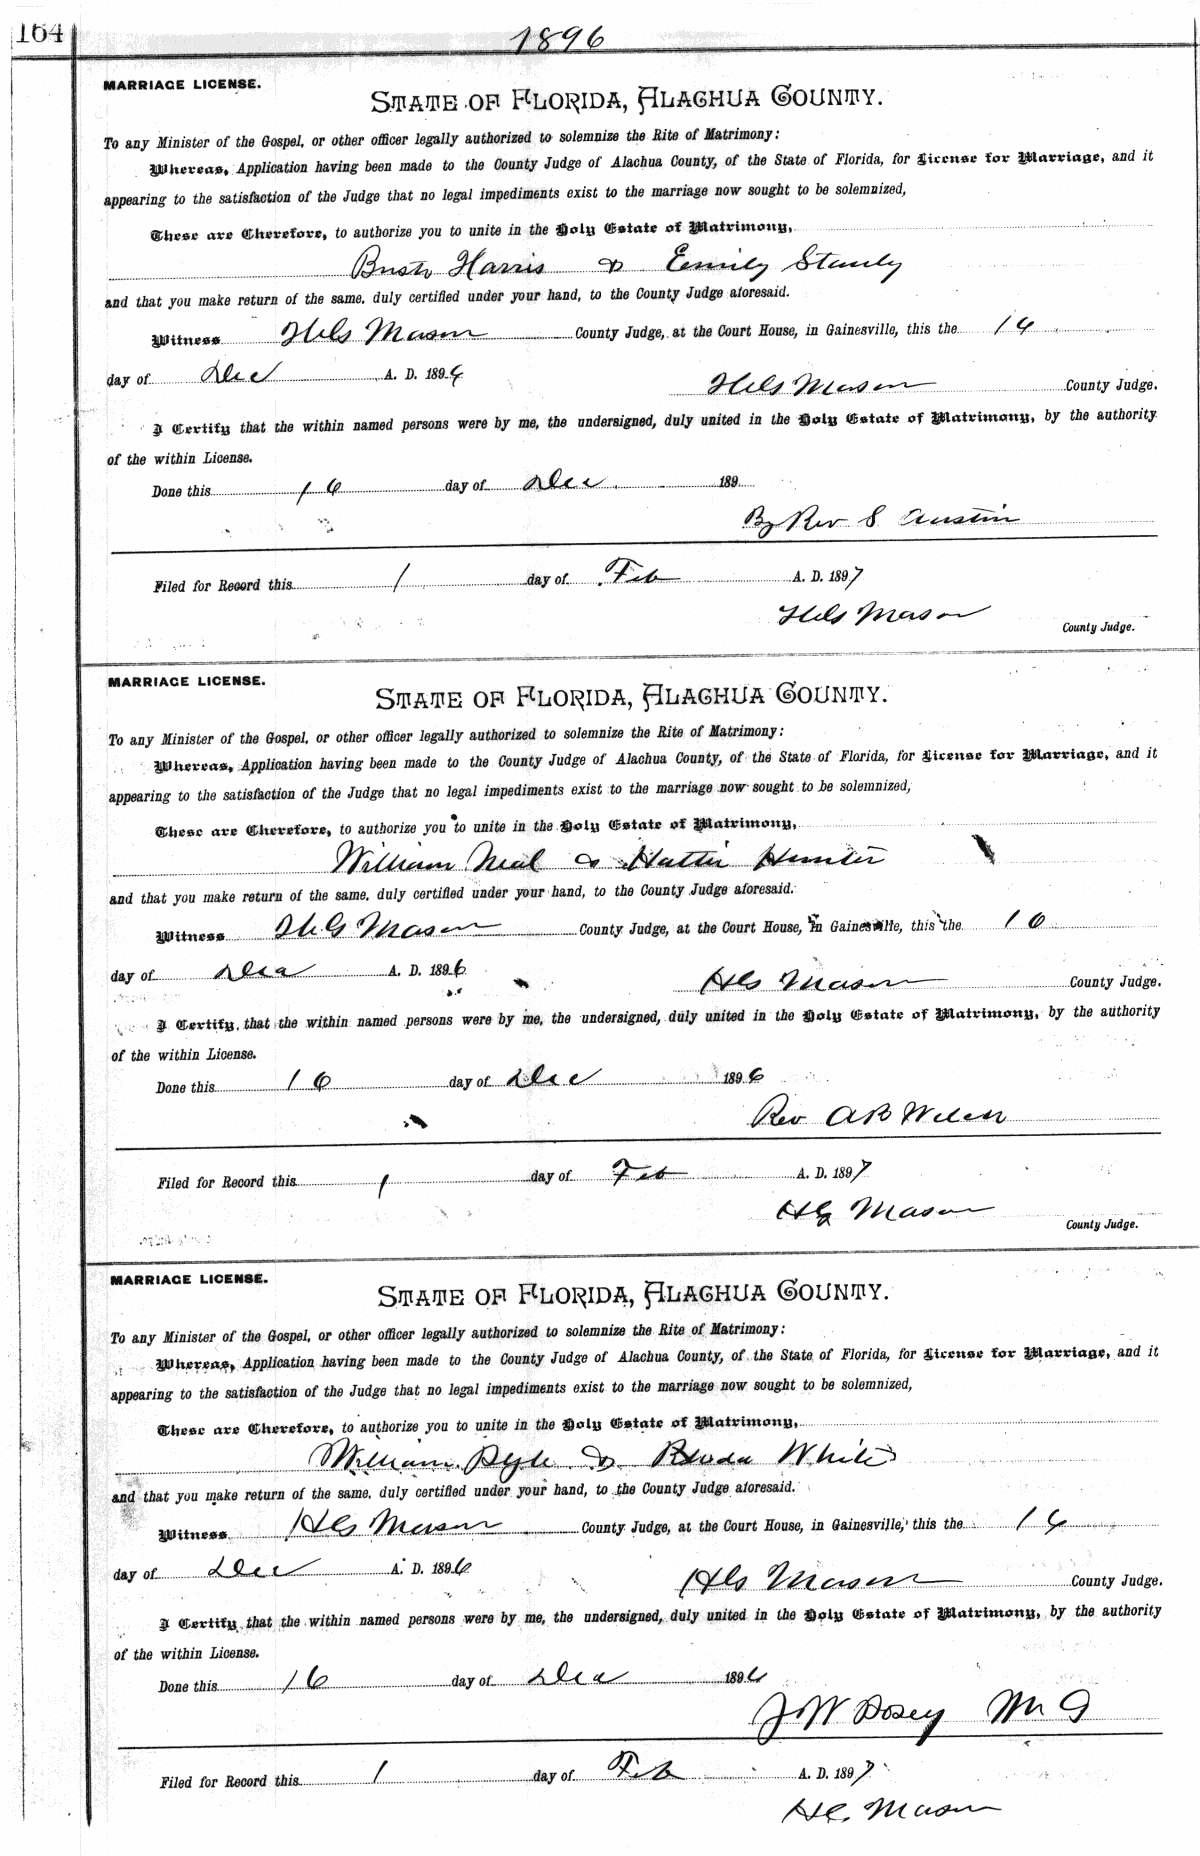 164
1896
MARRIAGE LICENSE.
STATE OF FLORIDA, ALACHUA COUNTY.
To any Minister of the Gospel, or other officer legally authorized to solemnize the Rite of Matrimony:
Whereas, Application having been made to the County Judge of Alachua County, of the State of Florida, for License for Marriage, and it
appearing to the satisfaction of the Judge that no legal impediments exist to the marriage now sought to be solemnized,
These are Therefore, to authorize you to unite in the Holy Estate of Matrimony,
Harris & Emily Stanly
and that you make return of the same, duly certified under your hand, to the County Judge aforesaid.
Witness Mason County Judge, at the Court House, in Gainesville, this the 16
day of Dec A. D. 1896
Mason County Judge.
I Certify that the within named persons were by me, the undersigned, duly united in the Holy Estate of Matrimony, by the authority
of the within License.
Done this 16 day of Dec 189
By Rev S Austin
Filed for Record this 1 day of Feb A. D. 1897
Mason
County Judge.
MARRIAGE LICENSE.
STATE OF FLORIDA, ALACHUA COUNTY.
To any Minister of the Gospel, or other officer legally authorized to solemnize the Rite of Matrimony:
Whereas, Application having been made to the County Judge of Alachua County, of the State of Florida, for License for Marriage, and it
appearing to the satisfaction of the Judge that no legal impediments exist to the marriage now sought to be solemnized,
These are Therefore, to authorize you to unite in the Holy Estate of Matrimony,
William Neal & Hattie Hunter
and that you make return of the same, duly certified under your hand, to the County Judge aforesaid.
Witness HG Mason County Judge, at the Court House, in Gainesville, this the 16
day of Dec A. D. 1896
HG Mason County Judge.
I Certify, that the within named persons were by me, the undersigned, duly united in the Holy Estate of Matrimony, by the authority
of the within License.
Done this 16 day of Dec 1896
Rev AB
Filed for Record this 1 day of Feb A. D. 1897
HG Mason
County Judge.
MARRIAGE LICENSE.
STATE OF FLORIDA, ALACHUA COUNTY.
To any Minister of the Gospel, or other officer legally authorized to solemnize the Rite of Matrimony:
Whereas, Application having been made to the County Judge of Alachua County, of the State of Florida, for License for Marriage, and it
appearing to the satisfaction of the Judge that no legal impediments exist to the marriage now sought to be solemnized,
These are Therefore, to authorize you to unite in the Holy Estate of Matrimony,
William Pyle & White
and that you make return of the same, duly certified under your hand, to the County Judge aforesaid.
Witness HG Mason County Judge, at the Court House, in Gainesville, this the 16
day of Dec A. D. 1896
HG Mason County Judge.
I Certify that the within named persons were by me, the undersigned, duly united in the Holy Estate of Matrimony, by the authority
of the within License.
Done this 16 day of Dec 1896
J W Dosey M G
Filed for Record this 1 day of Feb A. D. 1897
HG Mason